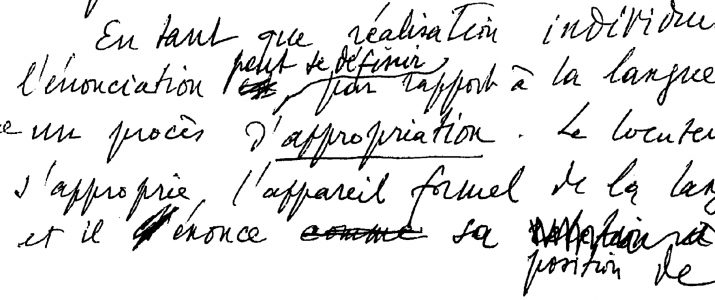 En tant que réalisation individu
l'énonciation peut se définir, par rapport à la langue
un procès d'appropriation. Le locuteu
s'approprie l'appareil formel de la lang
et il énonce comme sa position de